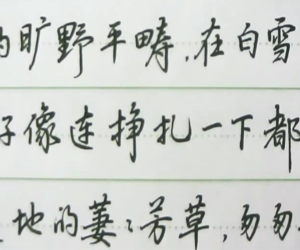 的旷野平畴,在白雪
好像连挣扎一下都
地的萋萋芳草,匆匆